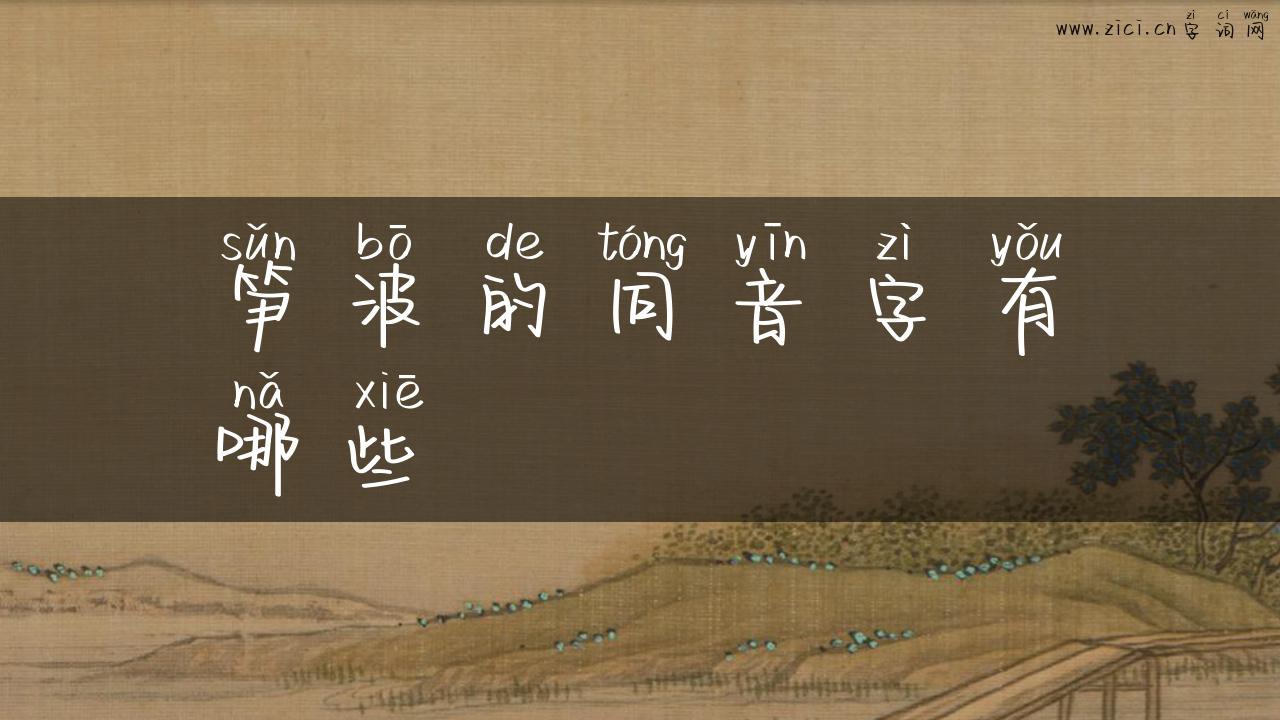 zì cí wǎng
www.zici.cn字词网
sǔn bō de tóng yīn zì yǒu
笋波的同音字有
nǎ xiē
哪些